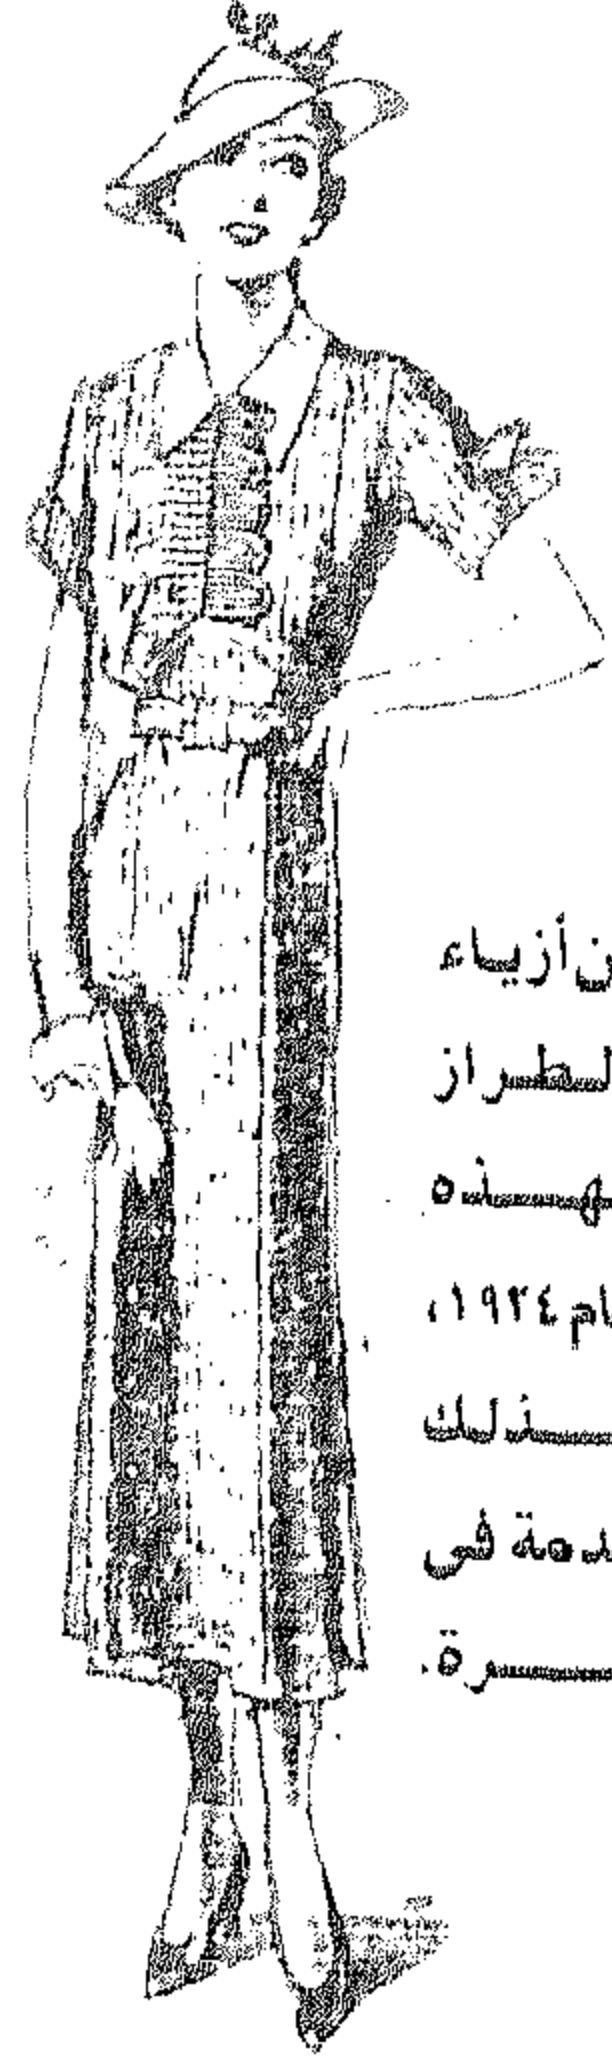 ن أزياء
لطراز
هذه
ام ١٩٣٤،
ذلك
دمة في
رة.